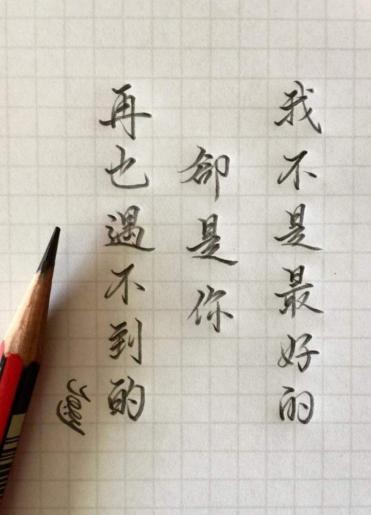 我不是最好的
卻是你
再也遇不到的